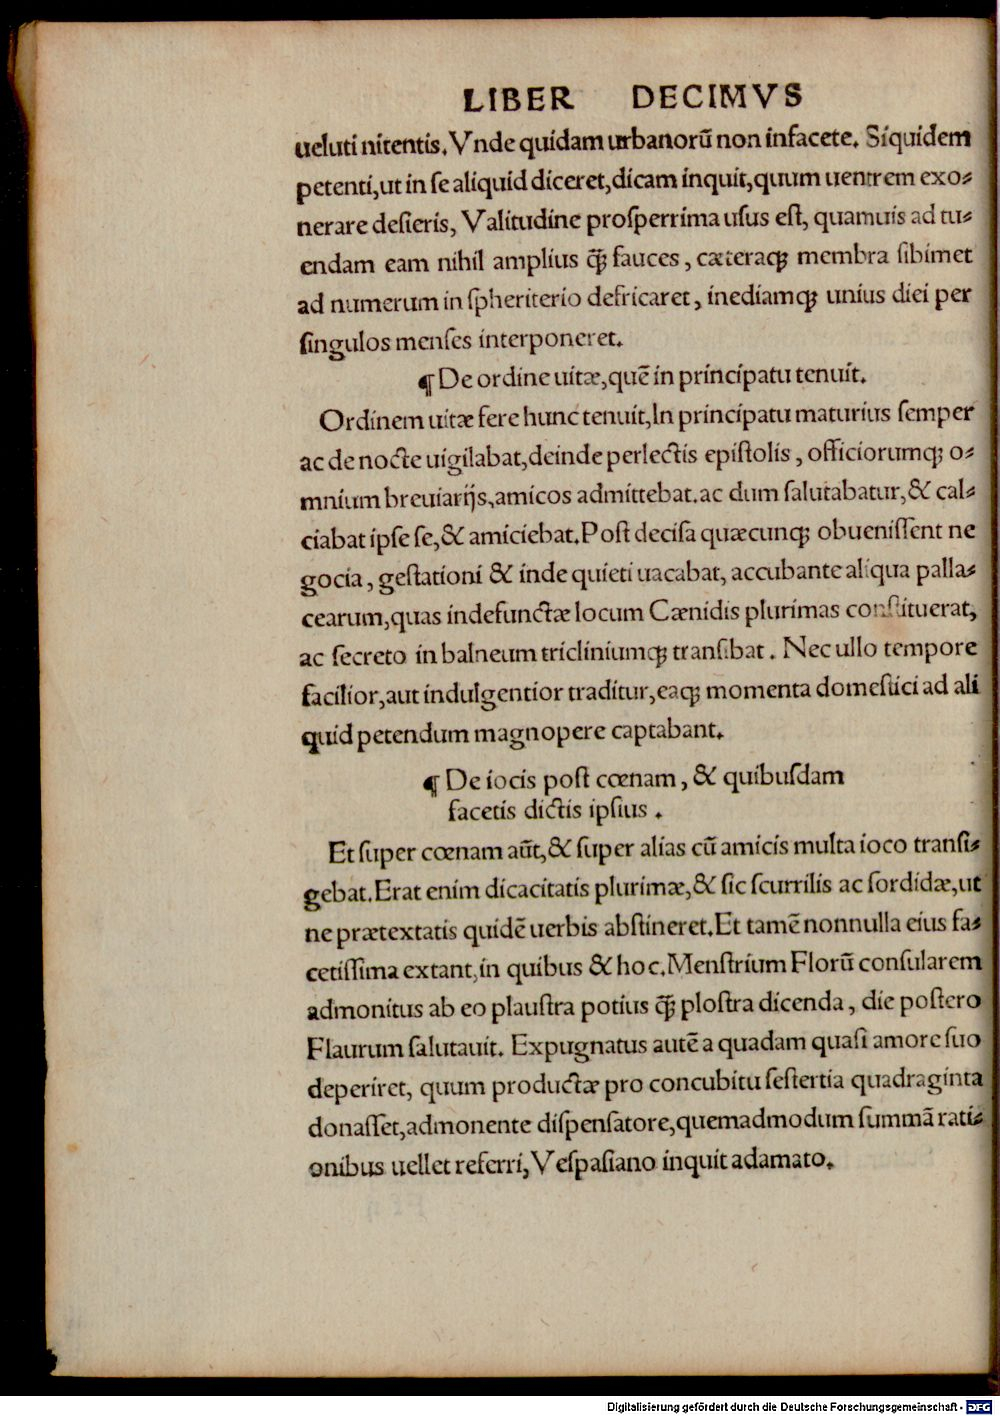 LIBER DECIMVS
ueluti nitentis. Vnde quidam urbanorũ non infacete. Siquidem
petenti, ut in se aliquid diceret, dicam inquit, quum uentrem exo-
nerare desieris, Valitudine prosperrima usus est, quamuis ad tu-
endam eam nihil amplius q̃ꝫ fauces, cæteraqꝫ membra sibimet
ad numerum in spheriterio defricaret, inediamqꝫ unius diei per
singulos menses interponeret.
¶ De ordine uitæ, quẽ in principatu tenuit.
Ordinem uitæ fere hunc tenuit, In principatu maturius semper
ac de nocte uigilabat, deinde perlectis epistolis, officiorumqꝫ o-
mnium breuiarijs, amicos admittebat. ac dum salutabatur, & cal-
ciabat ipse se, & amiciebat. Post decisa quæcunqꝫ obuenissent ne
gocia, gestationi & inde quieti uacabat, accubante aliqua palla-
cearum, quas indefunctæ locum Cænidis plurimas constituerat,
ac secreto in balneum tricliniumqꝫ transibat. Nec ullo tempore
facilior, aut indulgentior traditur, eaqꝫ momenta domestici ad ali
quid petendum magnopere captabant.
¶ De iocis post cœnam, & quibusdam
facetis dictis ipsius.
Et super cœnam aũt, & super alias cũ amicis multa ioco transi-
gebat. Erat enim dicacitatis plurimæ, & sic scurrilis ac sordidæ, ut
ne prætextatis quidẽ uerbis abstineret. Et tamẽ nonnulla eius fa-
cetissima extant, in quibus & hoc. Menstrium Florũ consularem
admonitus ab eo plaustra potius q̃ꝫ plostra dicenda, die postero
Flaurum salutauit. Expugnatus autẽ a quadam quasi amore suo
deperiret, quum productæ pro concubitu sestertia quadraginta
donasset, admonente dispensatore, quemadmodum summã rati-
onibus uellet referri, Vespasiano inquit adamato.
Digitalisierung gefördert durch die Deutsche Forschungsgemeinschaft - DFG